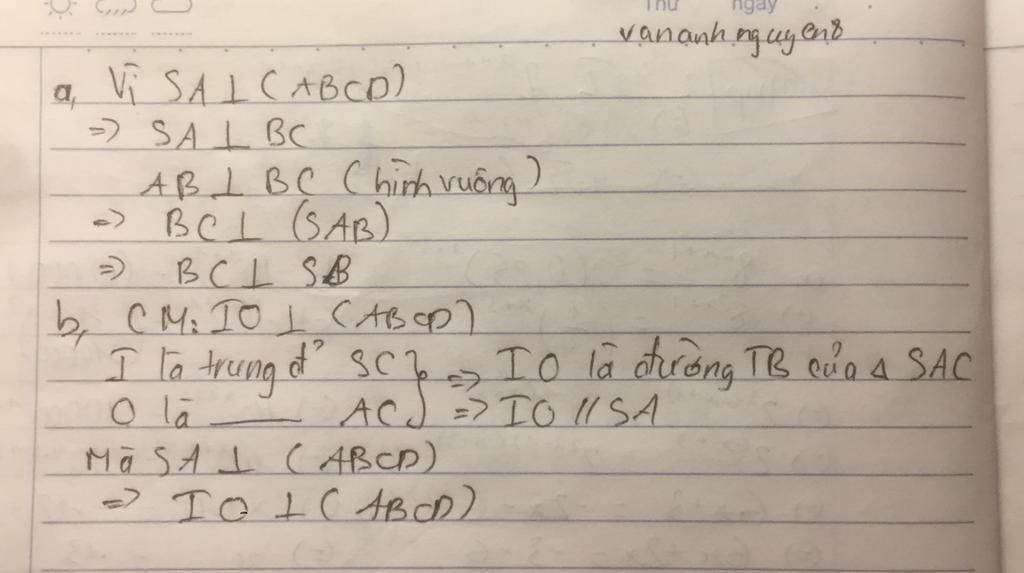 Thứ ngày
vananhnguyen8
a, Vì SA ⊥ (ABCD)
=> SA ⊥ BC
AB ⊥ BC (hình vuông)
=> BC ⊥ (SAB)
=> BC ⊥ SB
b, CM: IO ⊥ (ABCD)
I là trung đ' SC } => IO là đường TB của Δ SAC
O là ___ AC } => IO // SA
Mà SA ⊥ (ABCD)
=> IO ⊥ (ABCD)